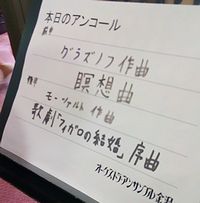 本日のアンコール
前半
グラズノフ作曲
瞑想曲
後半
モーツァルト作曲
歌劇「フィガロの結婚」序曲
オーケストラ・アンサンブル金沢